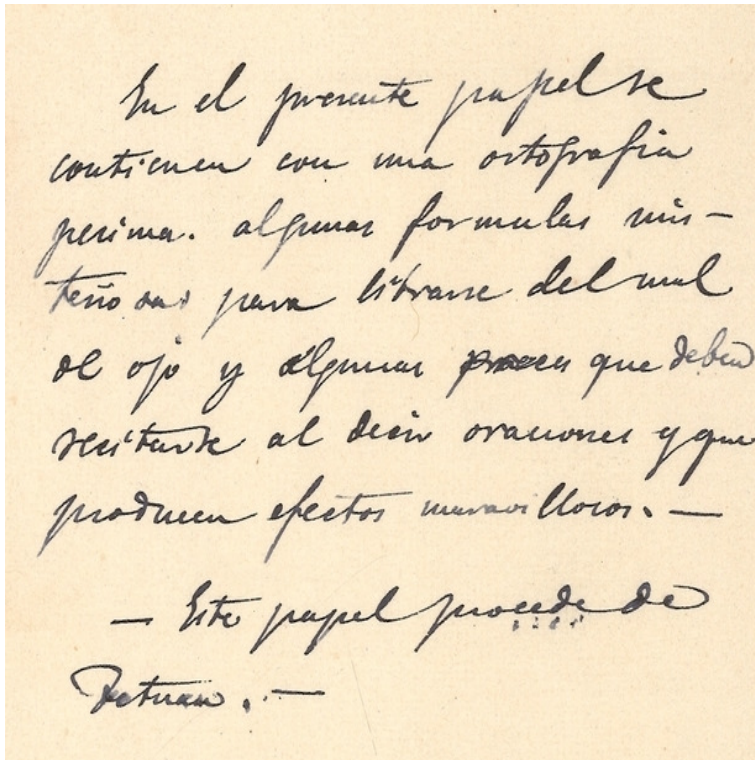 En el presente papel se
contienen con una ortografia
pesima. algunas formulas mis-
teriosas para librarse del mal
de ojo y algunas preces que deben
recitarse al decir oraciones y que
producen efectos maravillosos. —
— Este papel procede de
Tetuan. —